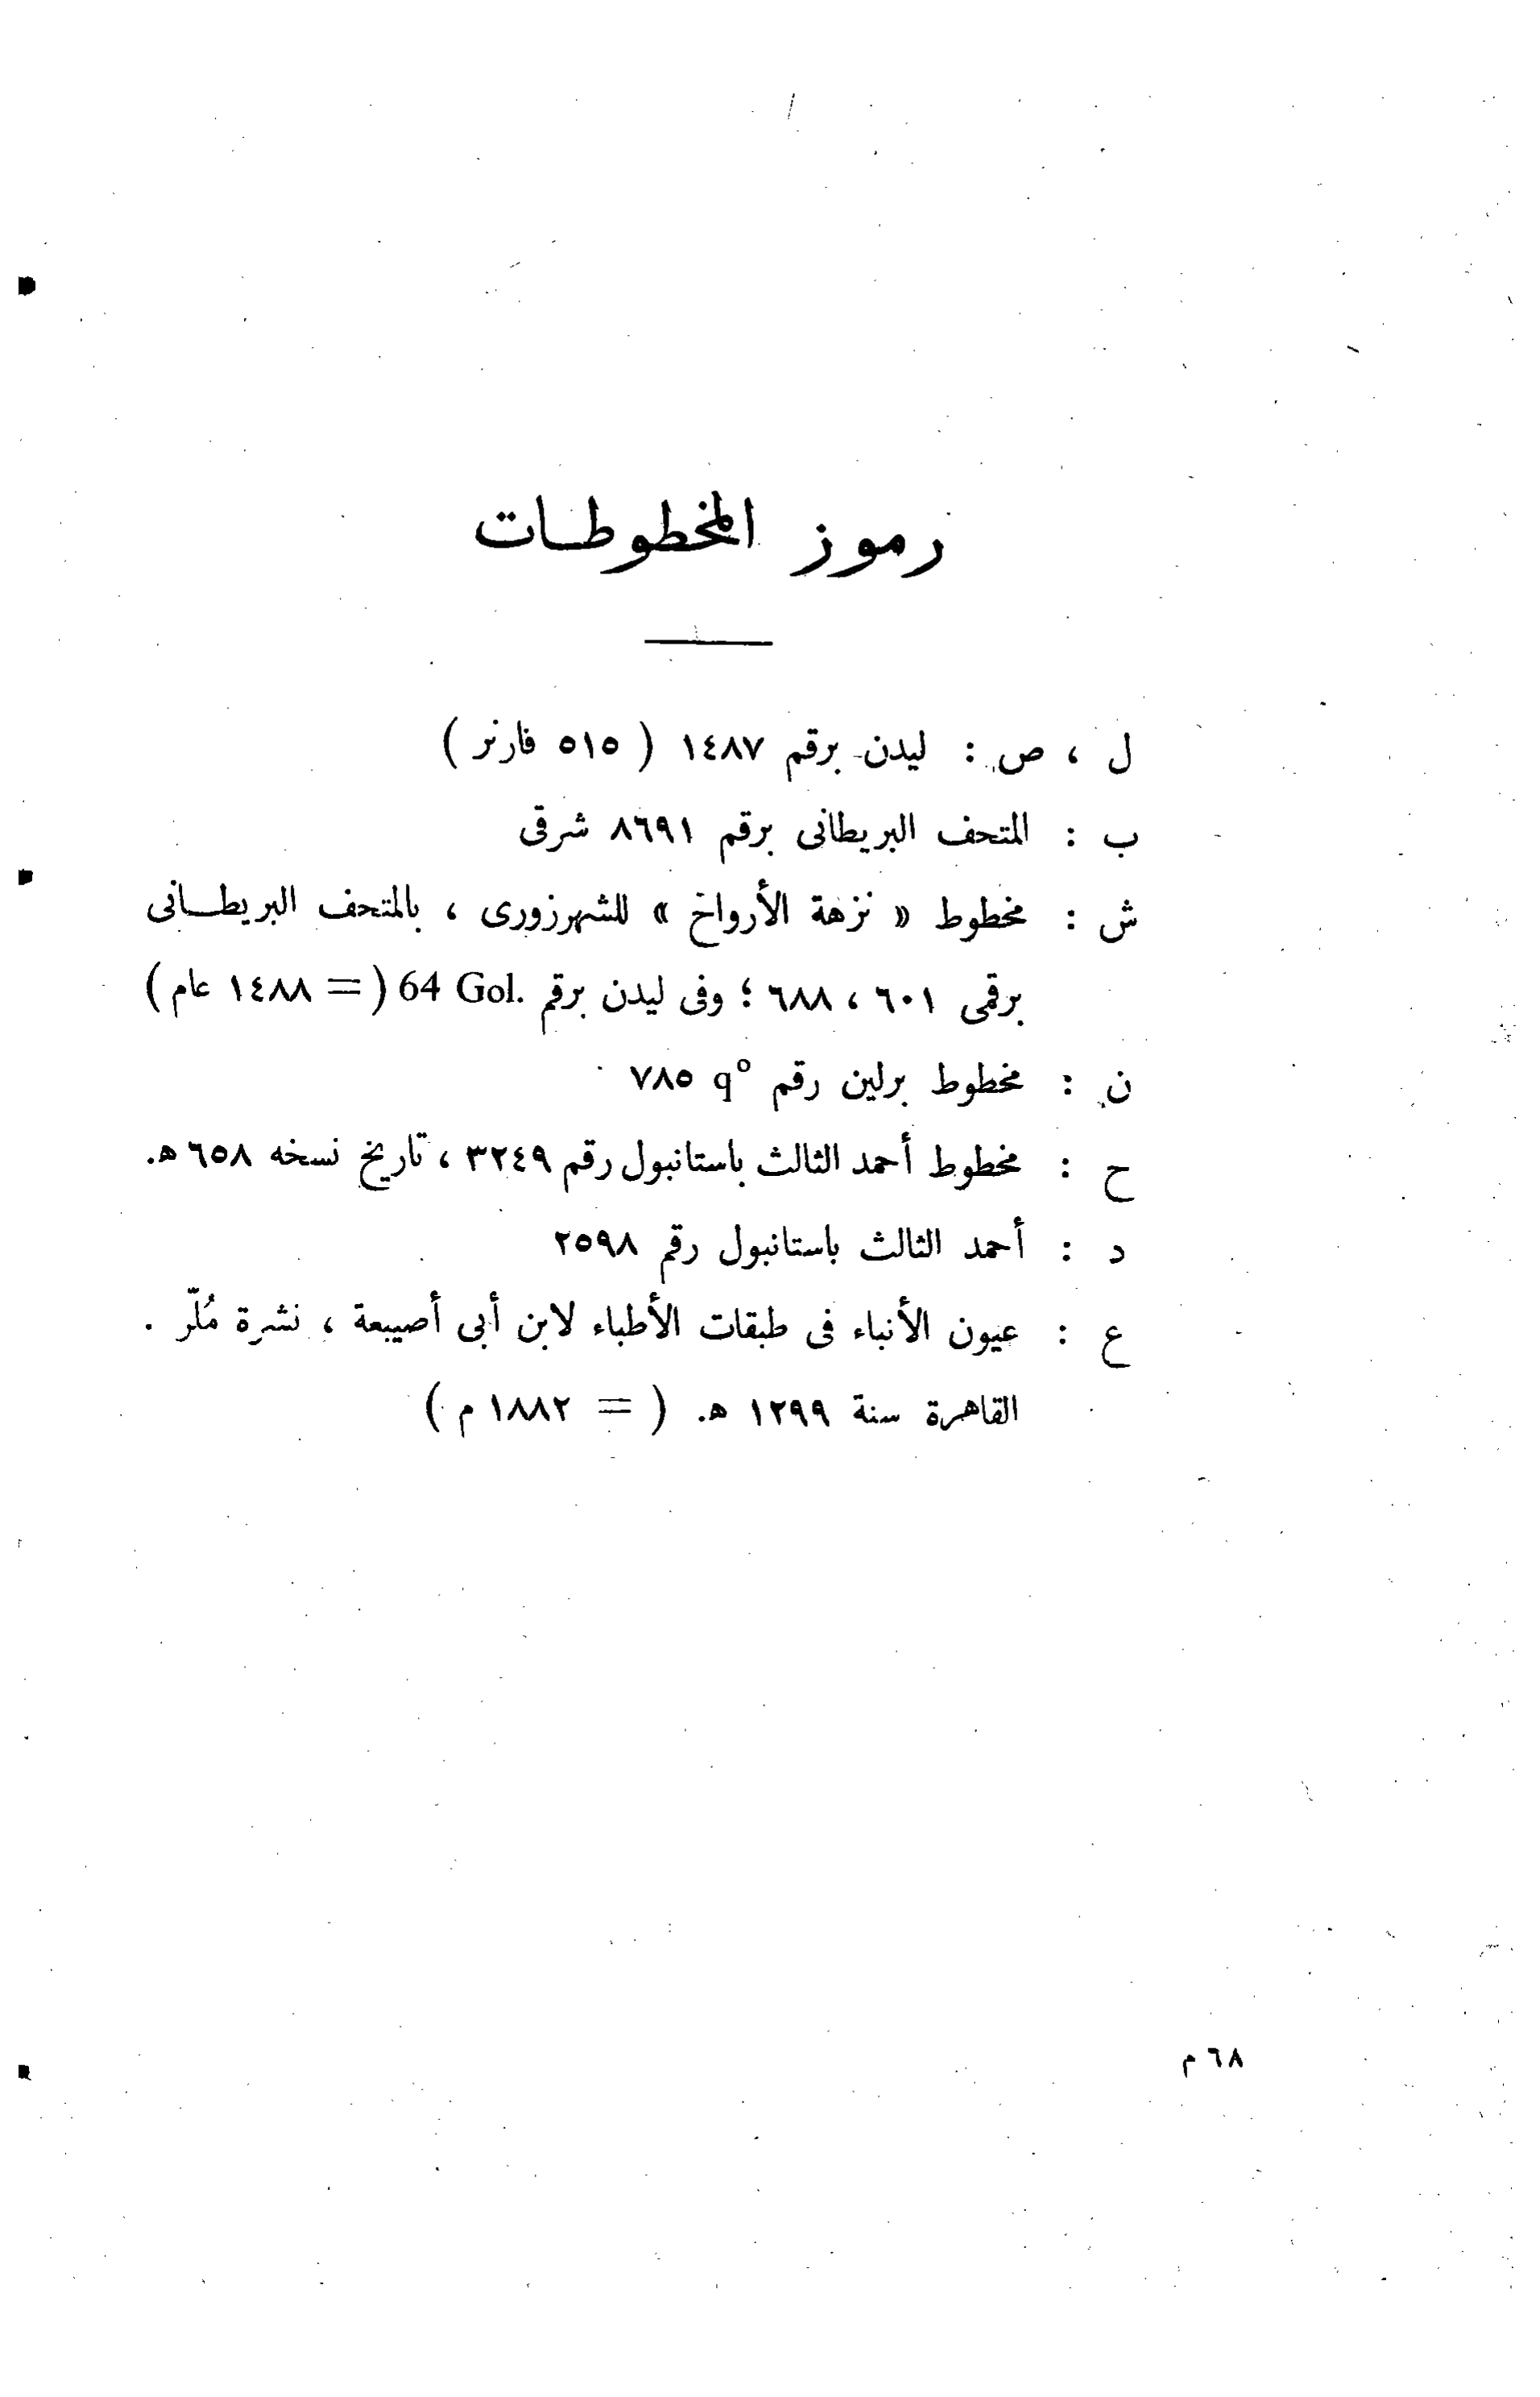 رموز المخطوطات
ل ، ص : ليدن برقم ١٤٨٧ ( ٥١٥ فارنر )
ب : المتحف البريطانى برقم ٨٦٩١ شرقى
ش : مخطوط « نزهة الأرواح » للشهرزورى ، بالمتحف البريطانى
برقمى ٦٠١ ، ٦٨٨ ؛ وفى ليدن برقم 64 Gol. ( = ١٤٨٨ عام )
ن : مخطوط برلين رقم q° ٧٨٥
ح : مخطوط أحمد الثالث باستانبول رقم ٣٢٤٩ ، تاريخ نسخه ٦٥٨ ه.
د : أحمد الثالث باستانبول رقم ٢٥٩٨
ع : عيون الأنباء فى طبقات الأطباء لابن أبى أصيبعة ، نشرة مُلّر .
القاهرة سنة ١٢٩٩ ه. ( = ١٨٨٢ م )
٦٨ م